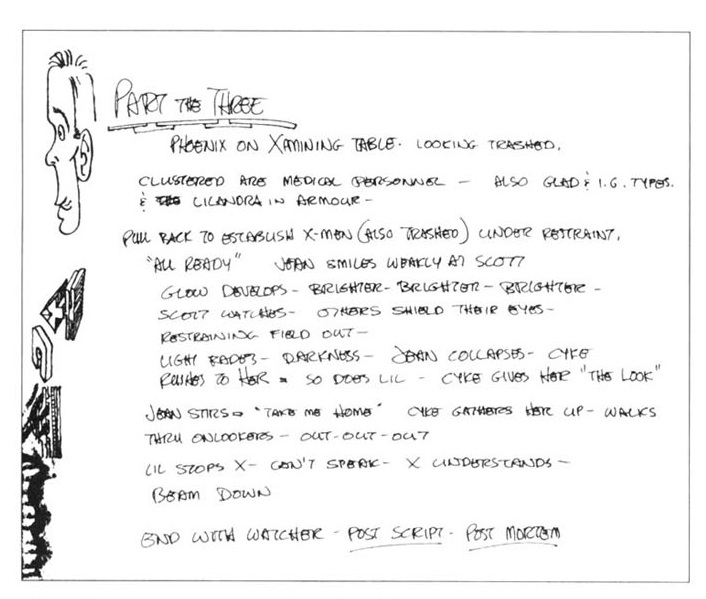 PART THE THREE
PHOENIX ON XAMINING TABLE. LOOKING TRASHED.
CLUSTERED ARE MEDICAL PERSONNEL — ALSO GLAD & I.G. TYPES.
& LILANDRA IN ARMOUR —
PULL BACK TO ESTABLISH X-MEN (ALSO TRASHED) UNDER RESTRAINT.
"ALL READY" JEAN SMILES WEAKLY AT SCOTT
GLOW DEVELOPS — BRIGHTER — BRIGHTER — BRIGHTER —
SCOTT WATCHES — OTHERS SHIELD THEIR EYES —
RESTRAINING FIELD OUT —
LIGHT FADES — DARKNESS — JEAN COLLAPSES — CYKE
RUSHES TO HER = SO DOES LIL — CYKE GIVES HER "THE LOOK"
JEAN STIRS = "TAKE ME HOME" CYKE GATHERS HER UP — WALKS
THRU ONLOOKERS — OUT — OUT — OUT
LIL STOPS X — CAN'T SPEAK — X UNDERSTANDS —
BEAM DOWN
END WITH WATCHER — POST SCRIPT — POST MORTEM